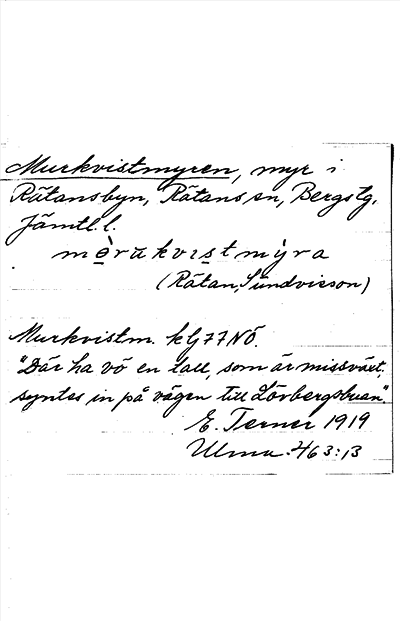 Murkvistmyren, myr i
Rätansbyn, Rätans sn, Bergs tg,
Jämtl. l.
mòrukvistmýra
(Rätan, Sundvisson)
Murkvistm. kG77NÖ.
"Där ha vö en tall, som är missväxt,
syntes in på vägen till Lövbergsbuan".
E. Terner 1919
Ulma. H63:13